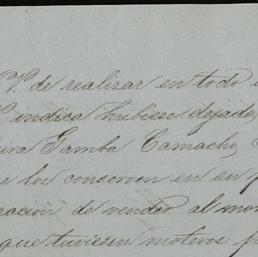 V. de realizar en todo
indica hubiese dejado,
Gamba Camacho,
los conserven en su
de vender al
que tuviesen motivos